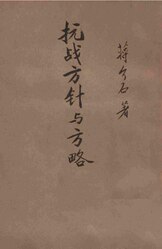 抗战方针与方略
蒋介石 著